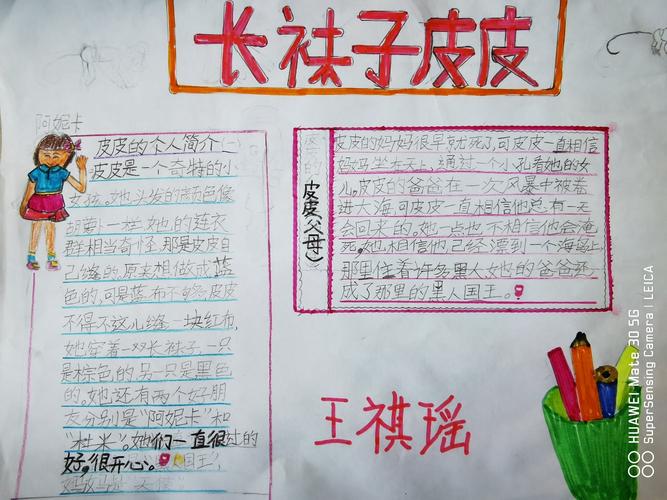 长袜子皮皮
阿妮卡
皮皮的个人简介(一)
皮皮是一个奇特的小
女孩。她头发的颜色像
胡萝卜一样,她的连衣
群相当奇怪,那是皮皮自
己缝的,原来想做成蓝
色的,可是蓝布不够,皮皮
不得不这儿缝一块红布,
她穿着一双长袜子,一只
是棕色的,另一只是黑色
的。她还有两个好朋
友分别是“阿妮卡”和
“杜米”。她们一直很过的
好。很开心。
皮皮父母)
皮皮的妈妈很早就死了,可皮皮一直相信
妈妈坐在天上,通过一个小孔看她的女
儿。皮皮的爸爸在一次风暴中被卷
进大海,可皮皮一直相信他总有一天
会回来的。她一点也不相信他会淹
死。她相信他已经漂到一个海岛上
那里住着许多黑人,她的爸爸
成了那里的黑人国王。
王祺瑶
HUAWEI Mate 30 5G
SuperSensing Camera | LEICA